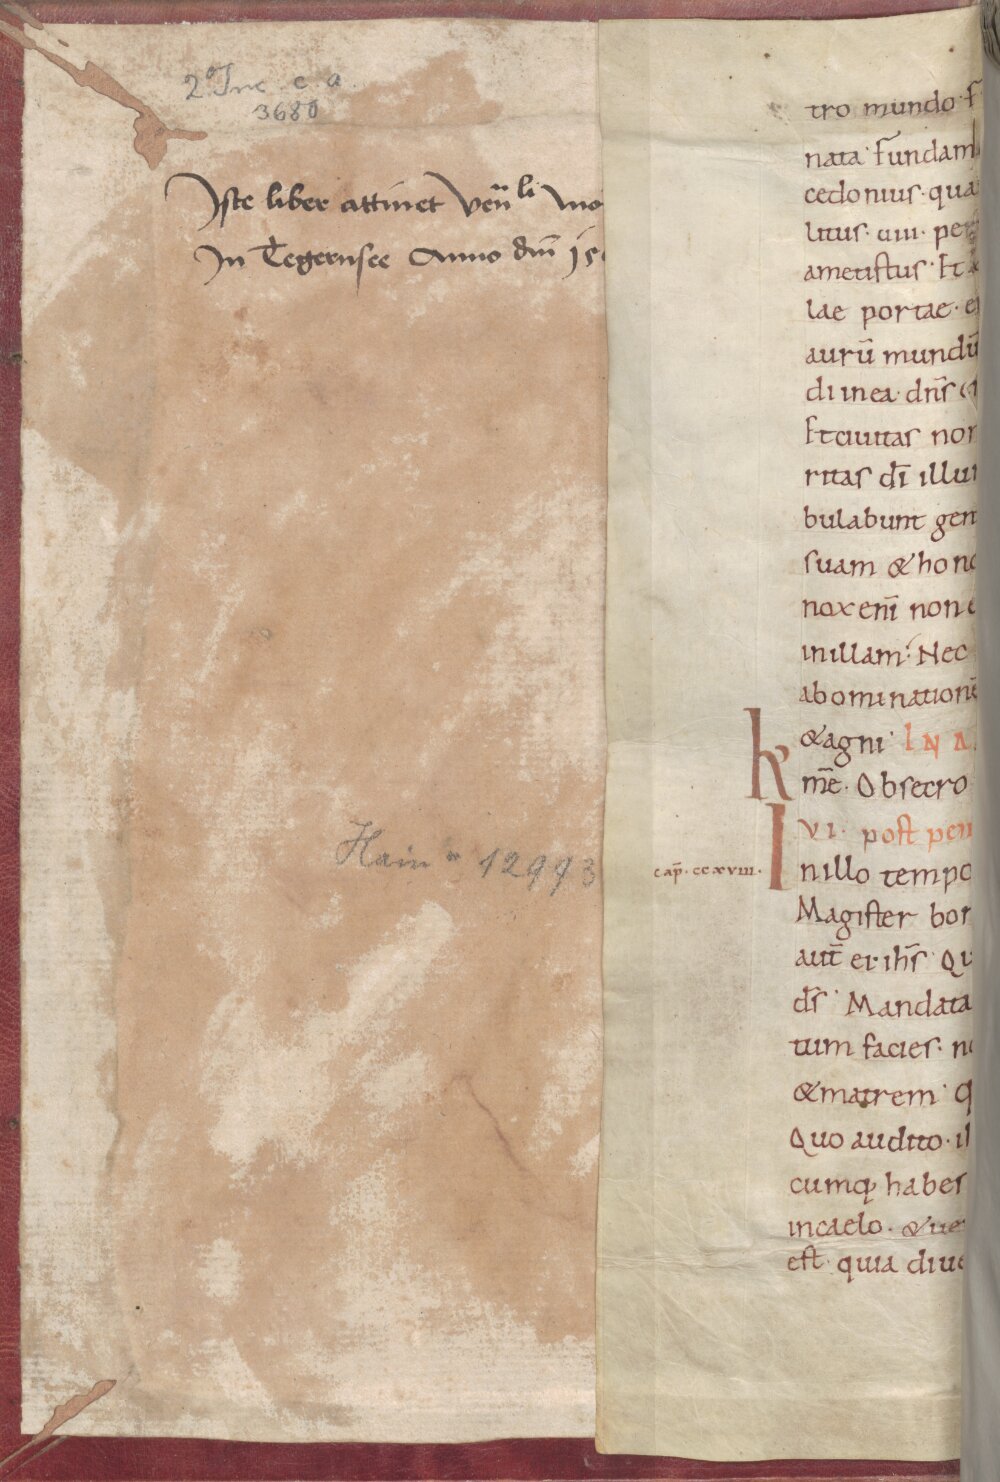 2° Inc. c. a.
3680
Iste liber attinet Veñ li mo
In Tegernsee Anno dm̄ 15
Hain * 12993
tro mundo
nata fundam
cedonius · qua
litus · uiii · per
ametistus · Et
lae portae · e
aurū mundū
di in ea · dn̄s
Et ciuitas non
ritas dī illu
bulabunt gen
suam & hono
nox enī non e
in illam · Nec
abominationē
& agni · IN A
k
m̄e · Obsecro
VI · post pen
cap̄ · ccxviii ·
Inillo tempo
Magister bon
aut̄ ei ihs̄ · Qu
ds̄ · Mandata
tum facies · no
& matrem · Q
Quo audito · il
cumq; habes
in caelo · & ue
est · quia diue